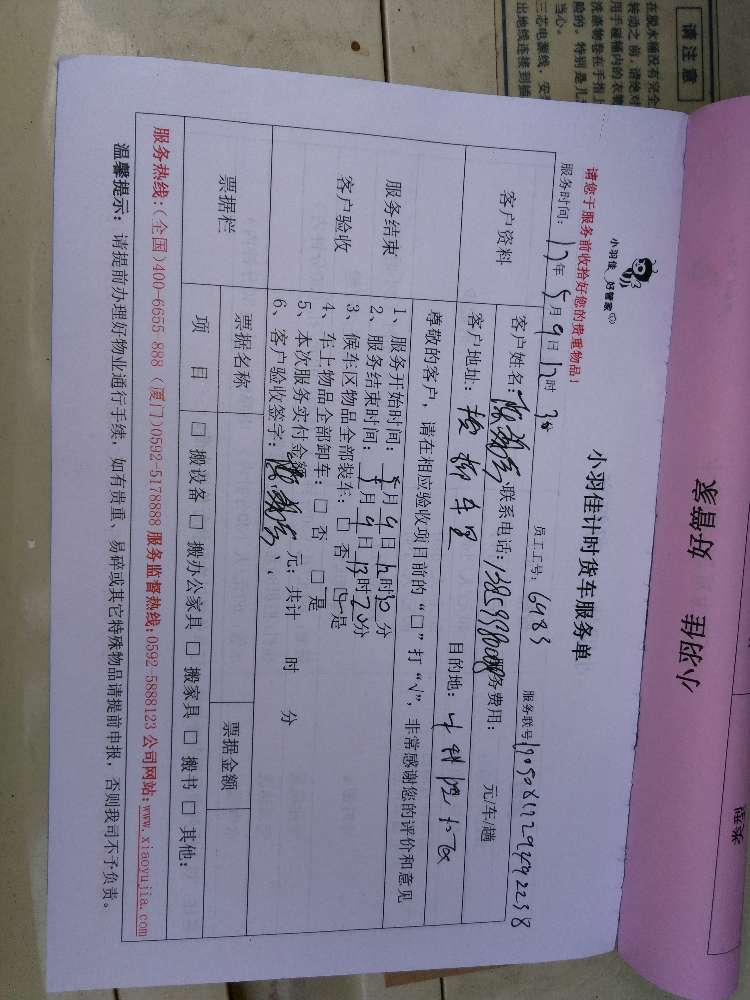 请注意
在脱水桶没有完全
转动之前,请绝对
用手碰桶内的衣物
洗涤物卷在手指上
险的。特别是儿
当心。
三芯电源线,安
出地线连接到插
小羽佳 好管家
小羽佳 好管家
小羽佳计时货车服务单
请您于服务前收拾好您的贵重物品!
员工工号: 6983
服务联号
服务时间: 17年5月9日12时3
客户资料
客户姓名: 联系电话: 服务费用: 元/车/趟
客户地址: 目的地:
服务结束
客户验收
尊敬的客户,请在相应验收项目前的“□”打“√”,非常感谢您的评价和意见
1、服务开始时间: 5月9日12时30分
2、服务结束时间: 5月9日13时20分
3、候车区物品全部装车: □ 否 ☑ 是
4、车上物品全部卸车: □ 否 □ 是
5、本次服务实付金额 元; 共计 时 分
6、客户验收签字:
票据栏
票据名称
票据金额
项 目
□ 搬设备 □ 搬办公家具 □ 搬家具 □ 搬书 □ 其他:
服务热线:(全国)400-6655 888 (厦门)0592-5178888 服务监督热线:0592-5888123 公司网站:www.xiaoyujia.com
温馨提示: 请提前办理好物业通行手续, 如有贵重、易碎或其它特殊物品请提前申报, 否则我司不予负责。